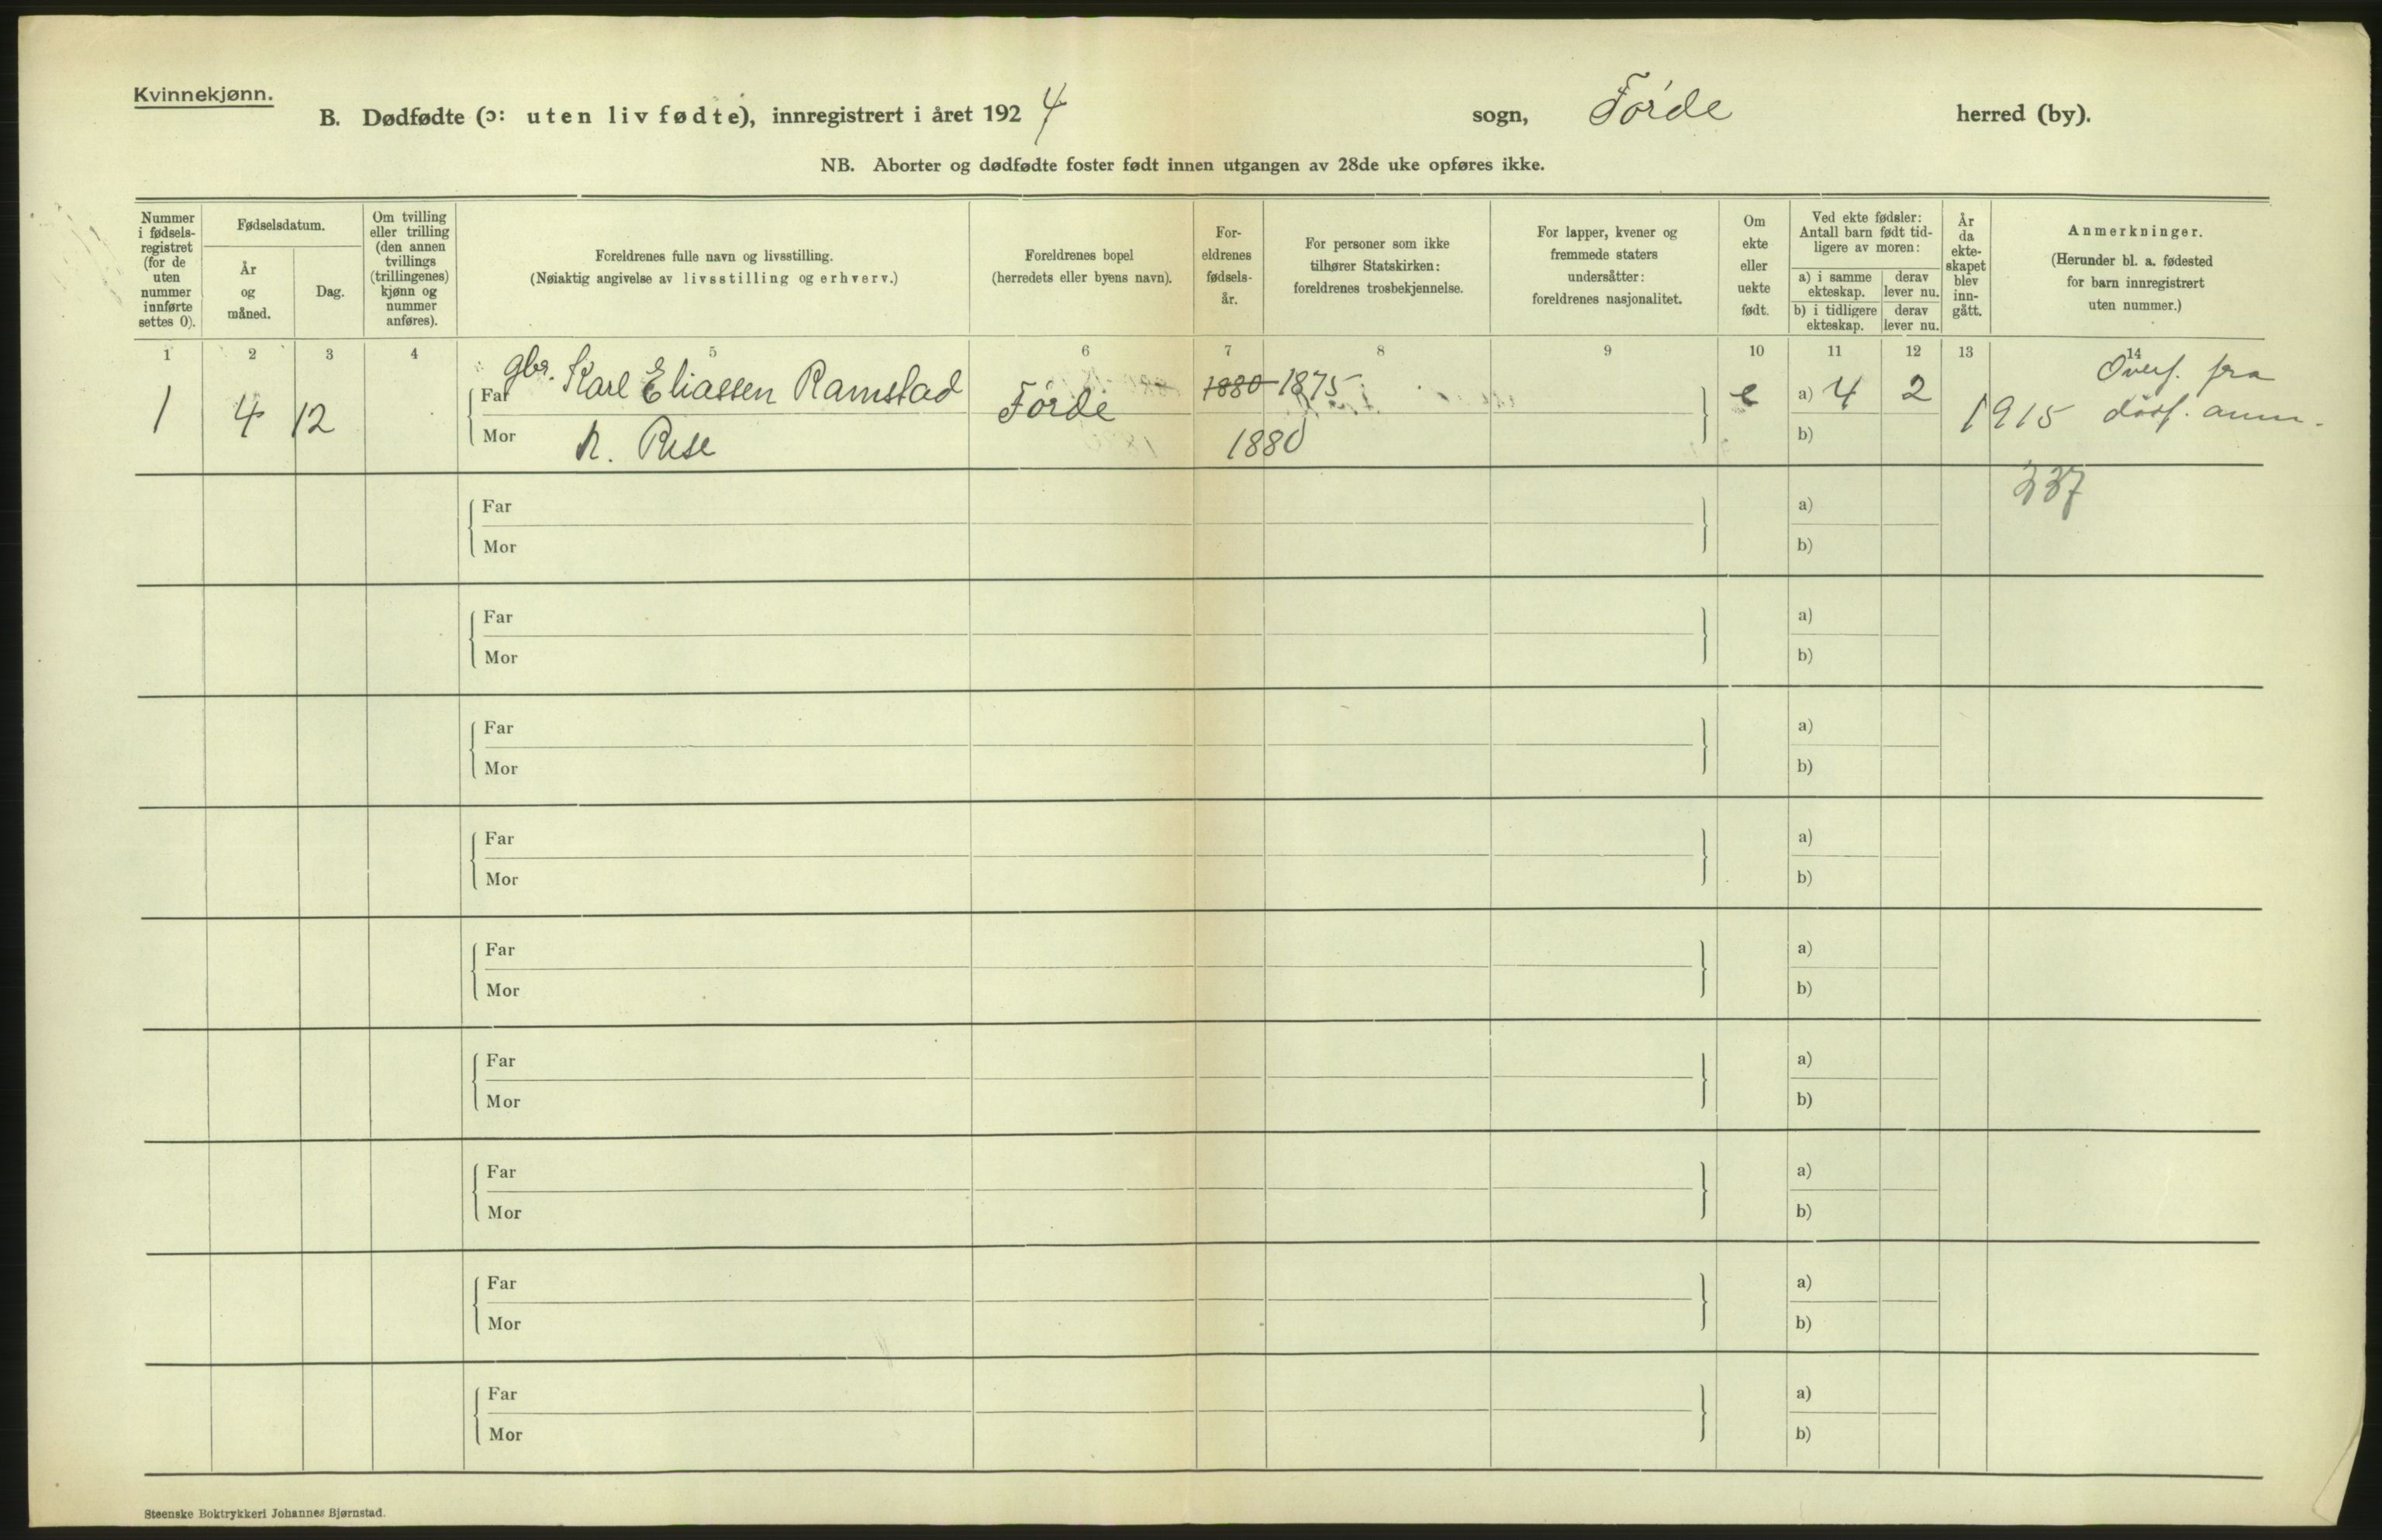 Kvinnekjønn.
B. Dødfødte (ɔ: uten liv fødte), innregistrert i året 1924 sogn, Förde herred (by).
NB. Aborter og dødfødte foster født innen utgangen av 28de uke opføres ikke.
Nummer i fødsels-registret (for de uten nummer innførte settes 0).
Fødselsdatum.
År og måned.
Dag.
Om tvilling eller trilling (den annen tvillings (trillingenes) kjønn og nummer anføres).
Foreldrenes fulle navn og livsstilling.
(Nøiaktig angivelse av livsstilling og erhverv.)
Foreldrenes bopel
(herredets eller byens navn).
For-eldrenes fødsels-år.
For personer som ikke tilhører Statskirken: foreldrenes trosbekjennelse.
For lapper, kvener og fremmede staters undersåtter: foreldrenes nasjonalitet.
Om ekte eller uekte født.
Ved ekte fødsler: Antall barn født tid-ligere av moren:
a) i samme ekteskap. derav lever nu.
b) i tidligere ekteskap. derav lever nu.
År da ekte-skapet blev inn-gått.
Anmerkninger.
(Herunder bl. a. fødested for barn innregistrert uten nummer.)
1 2 3 4 5 6 7 8 9 10 11 12 13 14
1 4 12 Far gbr. Karl Eliassen Ramstad Förde 1880 1875 e a) 4 2 1915 Overf. fra
Mor R. Rise 1880 b) dödf. anm.
237
Far a)
Mor b)
Far a)
Mor b)
Far a)
Mor b)
Far a)
Mor b)
Far a)
Mor b)
Far a)
Mor b)
Far a)
Mor b)
Far a)
Mor b)
Far a)
Mor b)
Steenske Boktrykkeri Johannes Bjørnstad.